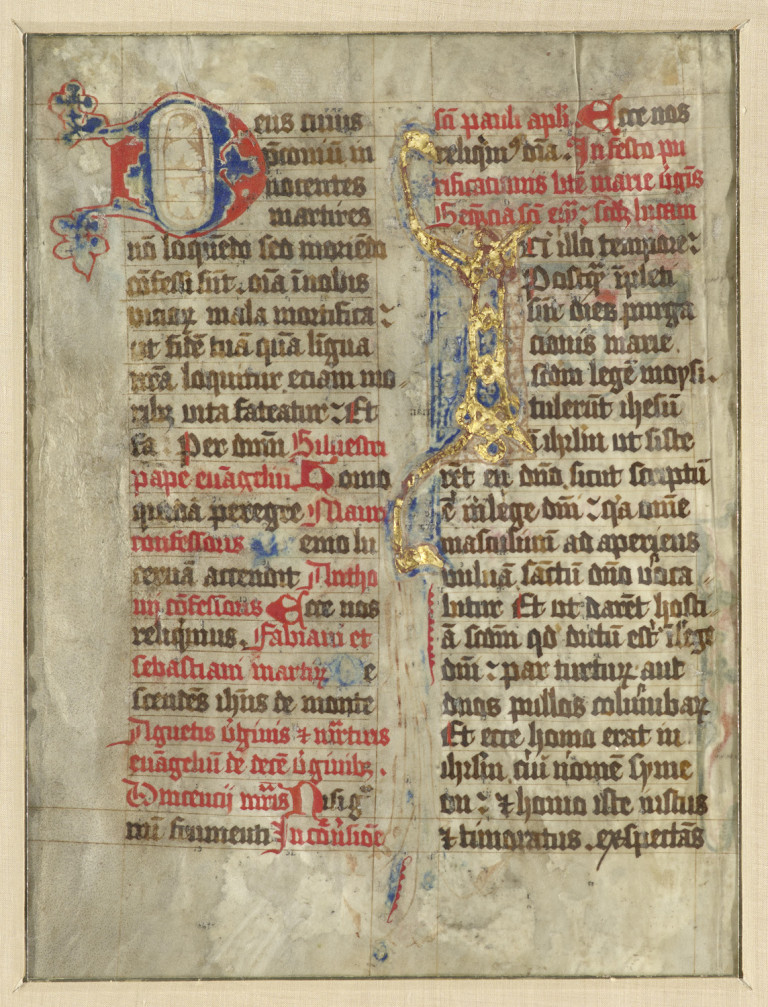 Deus cuius
p̄coniū in
nocentes
martires
nō loquēdo sed moriēdo
cōfessi sūt. oīa ī nobis
vicioꝝ mala mortifica
ut fidē tuā quā līgua
nr̄a loquitur. eciam mo
ribꝫ vita fateatur Et
fa Per dn̄m Siluestri
pāpe euāgeliū Homo
quidā peregre Mauri
confessoris Nemo lu
cernā accendit Antho
nii cōfessoris Ecce nos
reliquimus. Fabiani et
sebastiani martiꝝ De
scendēs ihūs de monte
Agnetis v̄ginis ⁊ mr̄tiris
euāgeliū de decē v̄ginibꝫ.
Vincencij mr̄is Nisi g
nū frumenti In cōūsiōe
sc̄i pauli apl̄i Ecce nos
reliqm̄ oīa. In festo pu
rificacionis bt̄e marie v̄gīs
Seq̄ncia sc̄i ew̄ scd̄ꝫ lucam
In illo tempore
Postq̄ īpleti
sūt dies purga
cionis marie.
scd̄m legē moysi.
tulerūt ihesū
ī ihrl̄m ut siste
rēt eū dn̄o. sicut scriptū
ē in lege dn̄i qͥa om̄e
masculinū ad aperiens
vuluā sāctū dn̄o voca
bitur Et ut darēt hosti
ā scd̄m qd̄ dictū est ī lege
dn̄i par turturꝝ aut
duos pullos columbaꝝ
Et ecce homo erat in
ihrl̄m. cui nomē syme
on ⁊ homo iste iustus
⁊ timoratus. exspectās